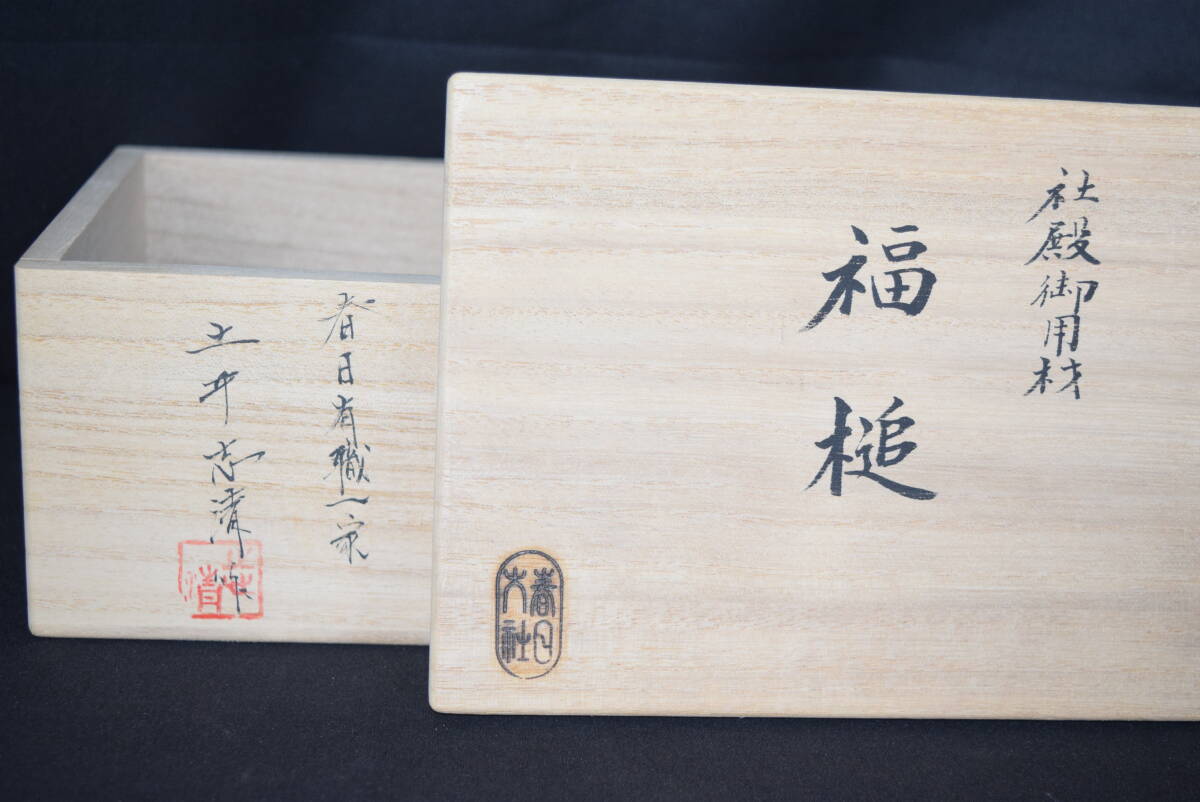 社殿御用材
福槌
春日大社
春日有職一家
土井志清作
志清